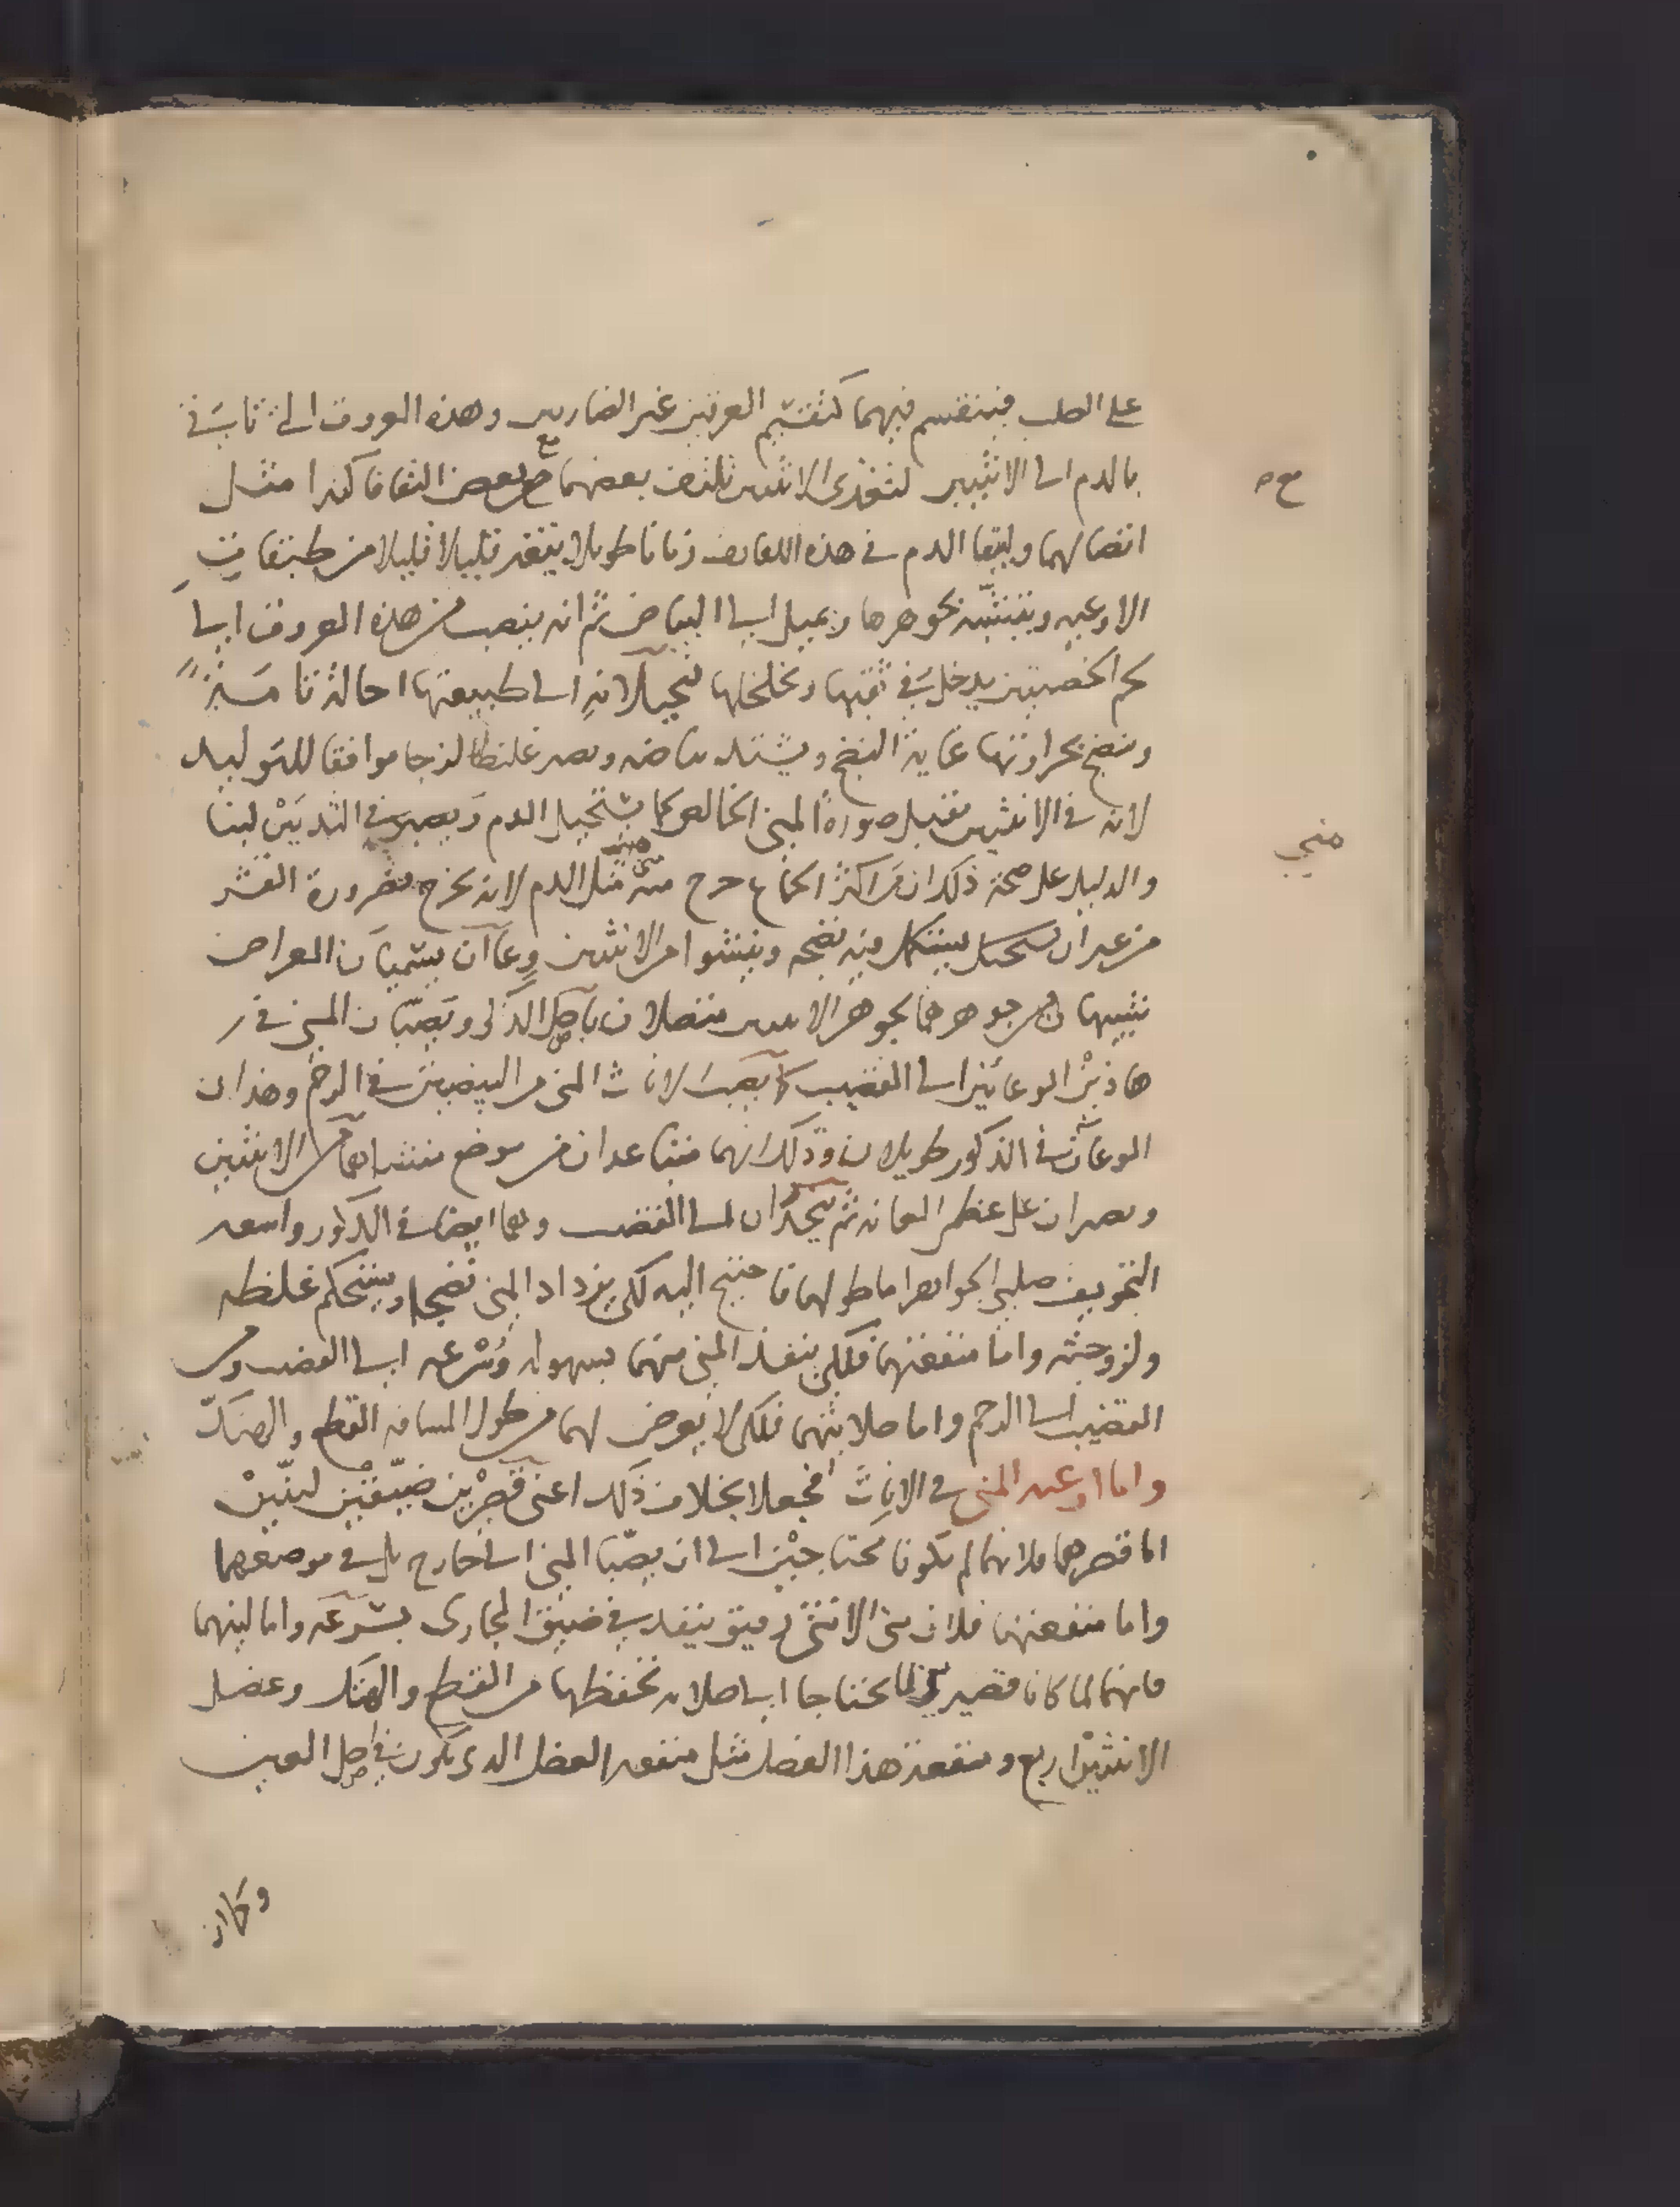 على الصلب فينقسم فيهما كتقسيم العرقين غير الضاربين وهذه العروق التي تاتي في
بالدم الى الانثيين لتغذى الانثيين تلتف بعضها مع بعض التفافا كثيرا مثل
مع
اتصالهما وليبقا الدم في هذه اللفايف زمانا طويلا يتغير قليلا قليلا من طبقات
الاوعيه ويتشبه بجوهرها ويميل الى البياض ثم انه ينصب من هذه العروق الى
لحم الخصيتين يدخل في ثقبها وتخلخلها فيحيلانه الى طبيعتها احالة تامة
وينضج بحرارتها غاية النضج ويشتد بياضه ويصير غليظا لزجا موافقا للتوليد
لانه في الانثيين يقبل صورة المني الخالص كما يستحيل الدم ويصير في الثديين لبنا
والدليل على صحة ذلك ان من اكثر الجماع خرج منه مني مثل الدم لانه يخرج بضرورة القسر
مني
من غير ان يستكمل فيه نضجه وينشوا من الانثيين وعاآن يسميان
شبيها جوهرهما بجوهر الانثيين متصلان باصل الذكر ويصبان المني في
هاذين الوعائين الى القضيب كما يصب الاناث المني من البيضتين في الرحم وهذان
الوعاآن في الذكور طويلان وذلك انهما متباعدان من موضع منشاهما من الانثيين
ويصيران على عظم العانه ثم ينحدران الى القضيب وهما ايضا في الذكور واسعه
التجويف صلبي الجواهر اما طولهما فاحتيج اليه لكي يزداد المني نضجا ويستحكم غلظه
ولزوجته واما منفعتهما فلكي ينفذ المني منهما بسهوله وسرعه الى القضيب ومن
القضيب الى الرحم واما صلابتهما فلكي لا يعرض لهما من طول المسافه القطع والهتك
واما اوعيه المني في الاناث فجعلا بخلاف ذلك اعني قصيرين ضيقين لينين
اما قصرهما فلانهما لم يكونا محتاجين الى ان يصبا المني الى خارج بل في موضعهما
واما منفعتهما فلان مني الانثى رقيق ينفذ في ضيق المجارى بسرعه واما لينهما
فانهما لما كانا قصيرين لم يحتاجا الى صلابه تحفظهما من القطع والهتك وعضل
الانثيين اربع ومنفعة هذا العضل مثل منفعه العضل الذي يكون في اصل العين
وكان